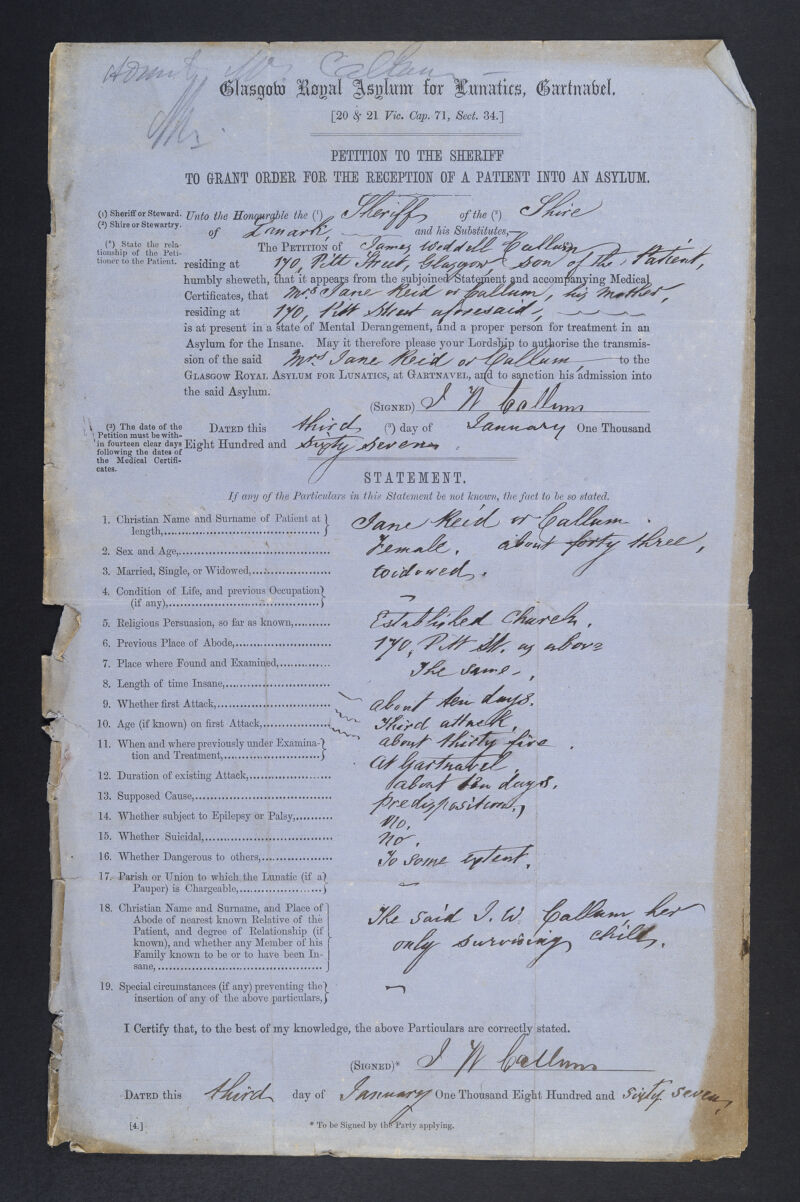 Glasgow Royal Asylum for Lunatics, Gartnavel.
[20 & 21 Vic. Cap. 71, Sect. 34.]
PETITION TO THE SHERIFF
TO GRANT ORDER FOR THE RECEPTION OF A PATIENT INTO AN ASYLUM.
(1) Sheriff or Steward.
(2) Shire or Stewartry.
Unto the Honourable the (1) Sheriff of the (2) Shire
of Lanark, and his Substitutes,—
(*) State the relationship of the Petitioner to the Patient.
The Petition of James Weddell Callum
residing at 170, Pitt Street, Glasgow son of the Patient,
humbly sheweth, that it appears from the subjoined Statement and accompanying Medical
Certificates, that Mrs Jane Reid or Callum, his mother,
residing at 170, Pitt Street aforesaid,
is at present in a state of Mental Derangement, and a proper person for treatment in an
Asylum for the Insane. May it therefore please your Lordship to authorise the transmis-
sion of the said Mrs Jane Reid or Callum, to the
Glasgow Royal Asylum for Lunatics, at Gartnavel, and to sanction his admission into
the said Asylum.
(Signed) J W Callum
(3) The date of the Petition must be within fourteen clear days following the dates of the Medical Certificates.
Dated this third (3) day of January One Thousand
Eight Hundred and sixty seven.
STATEMENT.
If any of the Particulars in this Statement be not known, the fact to be so stated.
1. Christian Name and Surname of Patient at length, Jane Reid or Callum.
2. Sex and Age, Female. about forty three,
3. Married, Single, or Widowed, Widowed.
4. Condition of Life, and previous Occupation (if any), —
5. Religious Persuasion, so far as known, Established Church.
6. Previous Place of Abode, 170, Pitt St. as above
7. Place where Found and Examined, The same,
8. Length of time Insane, about ten days.
9. Whether first Attack, Third attack,
10. Age (if known) on first Attack, about thirty five.
11. When and where previously under Examination and Treatment, at Gartnavel
12. Duration of existing Attack, about ten days.
13. Supposed Cause, predisposition,
14. Whether subject to Epilepsy or Palsy, No.
15. Whether Suicidal, No.
16. Whether Dangerous to others, To some extent.
17. Parish or Union to which the Lunatic (if a Pauper) is Chargeable, —
18. Christian Name and Surname, and Place of Abode of nearest known Relative of the Patient, and degree of Relationship (if known), and whether any Member of his Family known to be or to have been Insane, The said J. W. Callum, her only surviving child.
19. Special circumstances (if any) preventing the insertion of any of the above particulars, —
I Certify that, to the best of my knowledge, the above Particulars are correctly stated.
(Signed)* J W Callum
Dated this third day of January One Thousand Eight Hundred and sixty seven,
[4.]
* To be Signed by the Party applying.